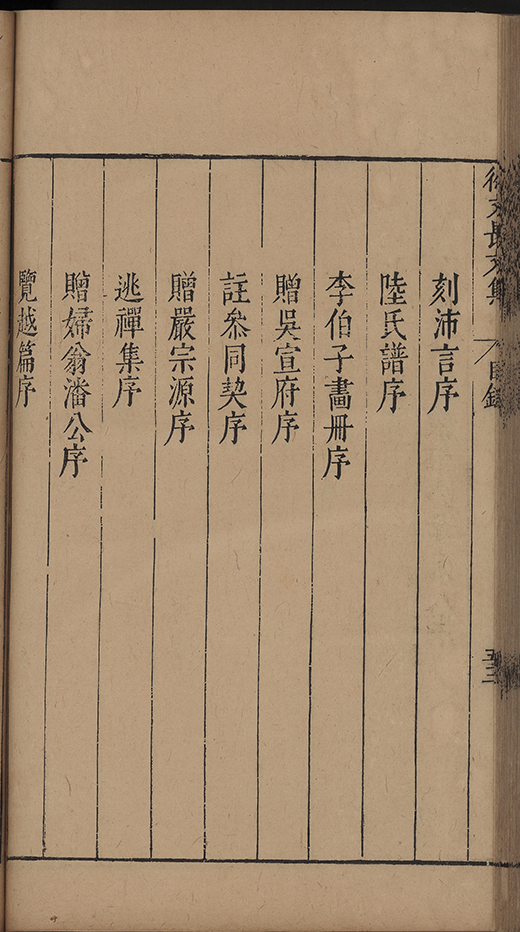 徐文長文集
目錄
五二
刻沛言序
陸氏譜序
李伯子畫冊序
贈吳宣府序
註叅同契序
贈嚴宗源序
逃禪集序
贈婦翁潘公序
覽越篇序